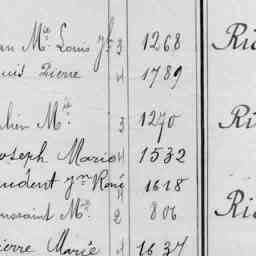 an Mie Louis 3 1268 Ri
uis Pierre 4 1789
ulien Mie 3 1270 Ri
oseph Marie 4 1532
rudent Jn René 4 1618
oussaint Mie 2 806 Ri
ierre Marie 4 1637